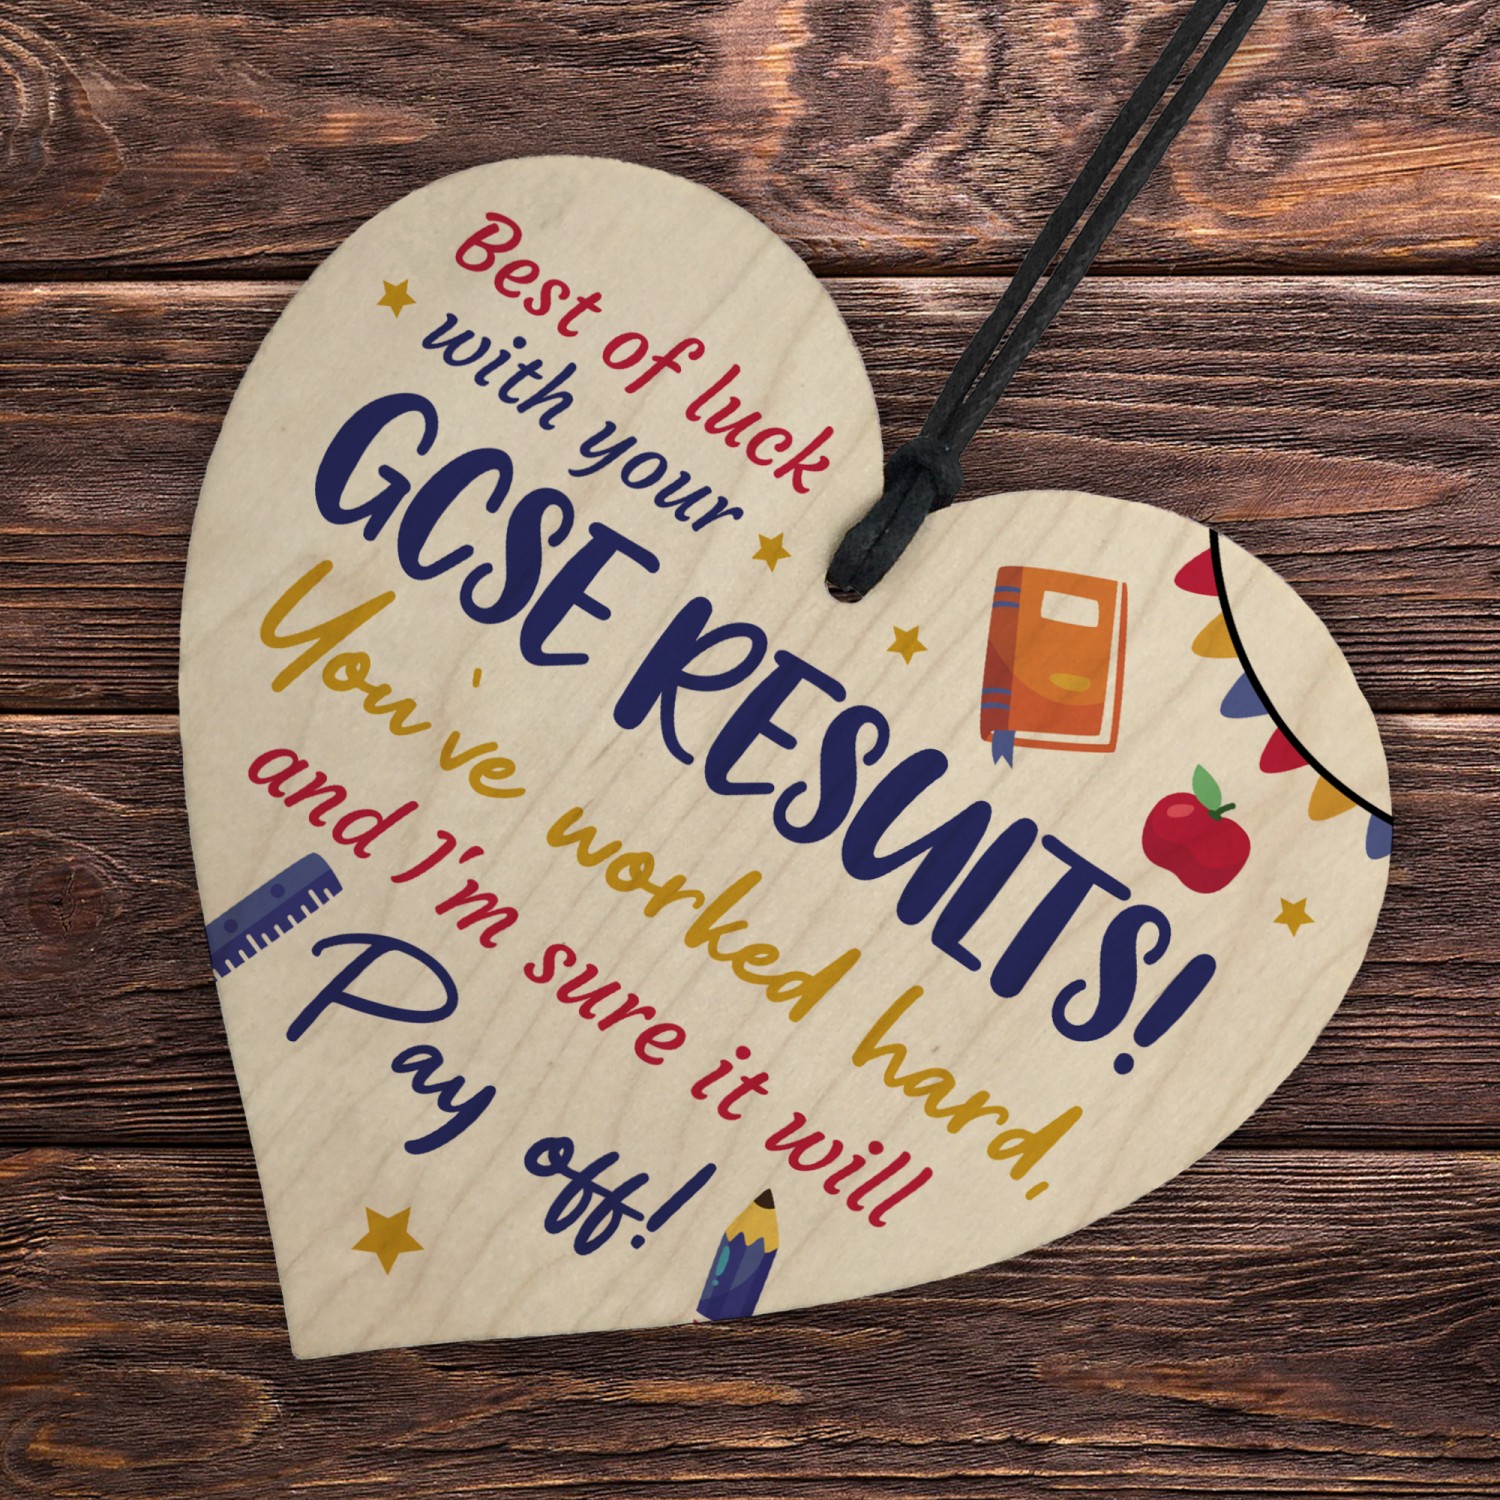 Best of luck
with your
GCSE RESULTS!
You've worked hard,
and I'm sure it will
Pay off!